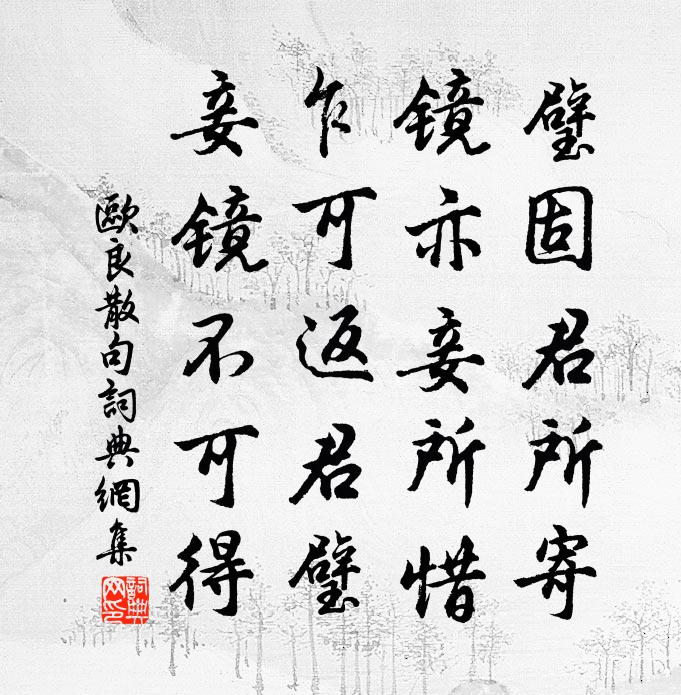 璧固君所寄
镜亦妾所惜
乍可返君璧
妾镜不可得
歐良散句詞典網集
詞典网印